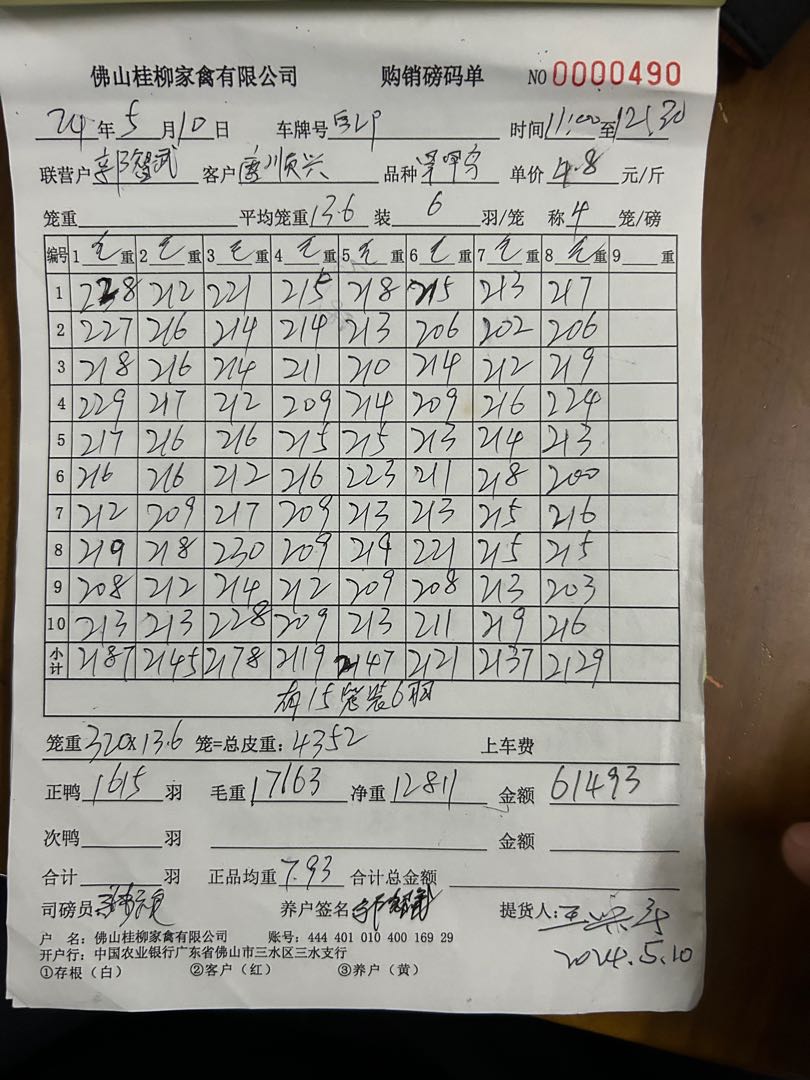 佛山桂柳家禽有限公司 购销磅码单 NO 0000490
24年5月10日 车牌号 时间11:00至12:30
联营户郭智武 客户 顺兴 品种 单价4.8元/斤
笼重 平均笼重13.6 装6羽/笼 称4笼/磅
编号 1毛重 2毛重 3毛重 4毛重 5毛重 6毛重 7毛重 8毛重 9 重
1 228 212 221 215 218 215 213 217
2 227 216 214 214 213 206 202 206
3 218 216 214 211 210 214 212 219
4 229 217 212 209 214 209 216 224
5 217 216 216 215 215 213 214 213
6 216 216 212 216 223 211 218 200
7 212 209 217 209 213 213 215 216
8 219 218 230 209 219 221 215 215
9 208 212 214 212 209 208 213 203
10 213 213 228 209 213 211 219 216
小计 2187 2145 2178 2119 2147 2121 2137 2129
有15笼装6羽
笼重320x13.6笼=总皮重:4352 上车费
正鸭1615羽 毛重17163 净重12811 金额61493
次鸭 羽 金额
合计 羽 正品均重7.93 合计总金额
司磅员 养户签名 提货人:
2024.5.10
户 名:佛山桂柳家禽有限公司 账号:444 401 010 400 169 29
开户行:中国农业银行广东省佛山市三水区三水支行
①存根(白) ②客户(红) ③养户(黄)